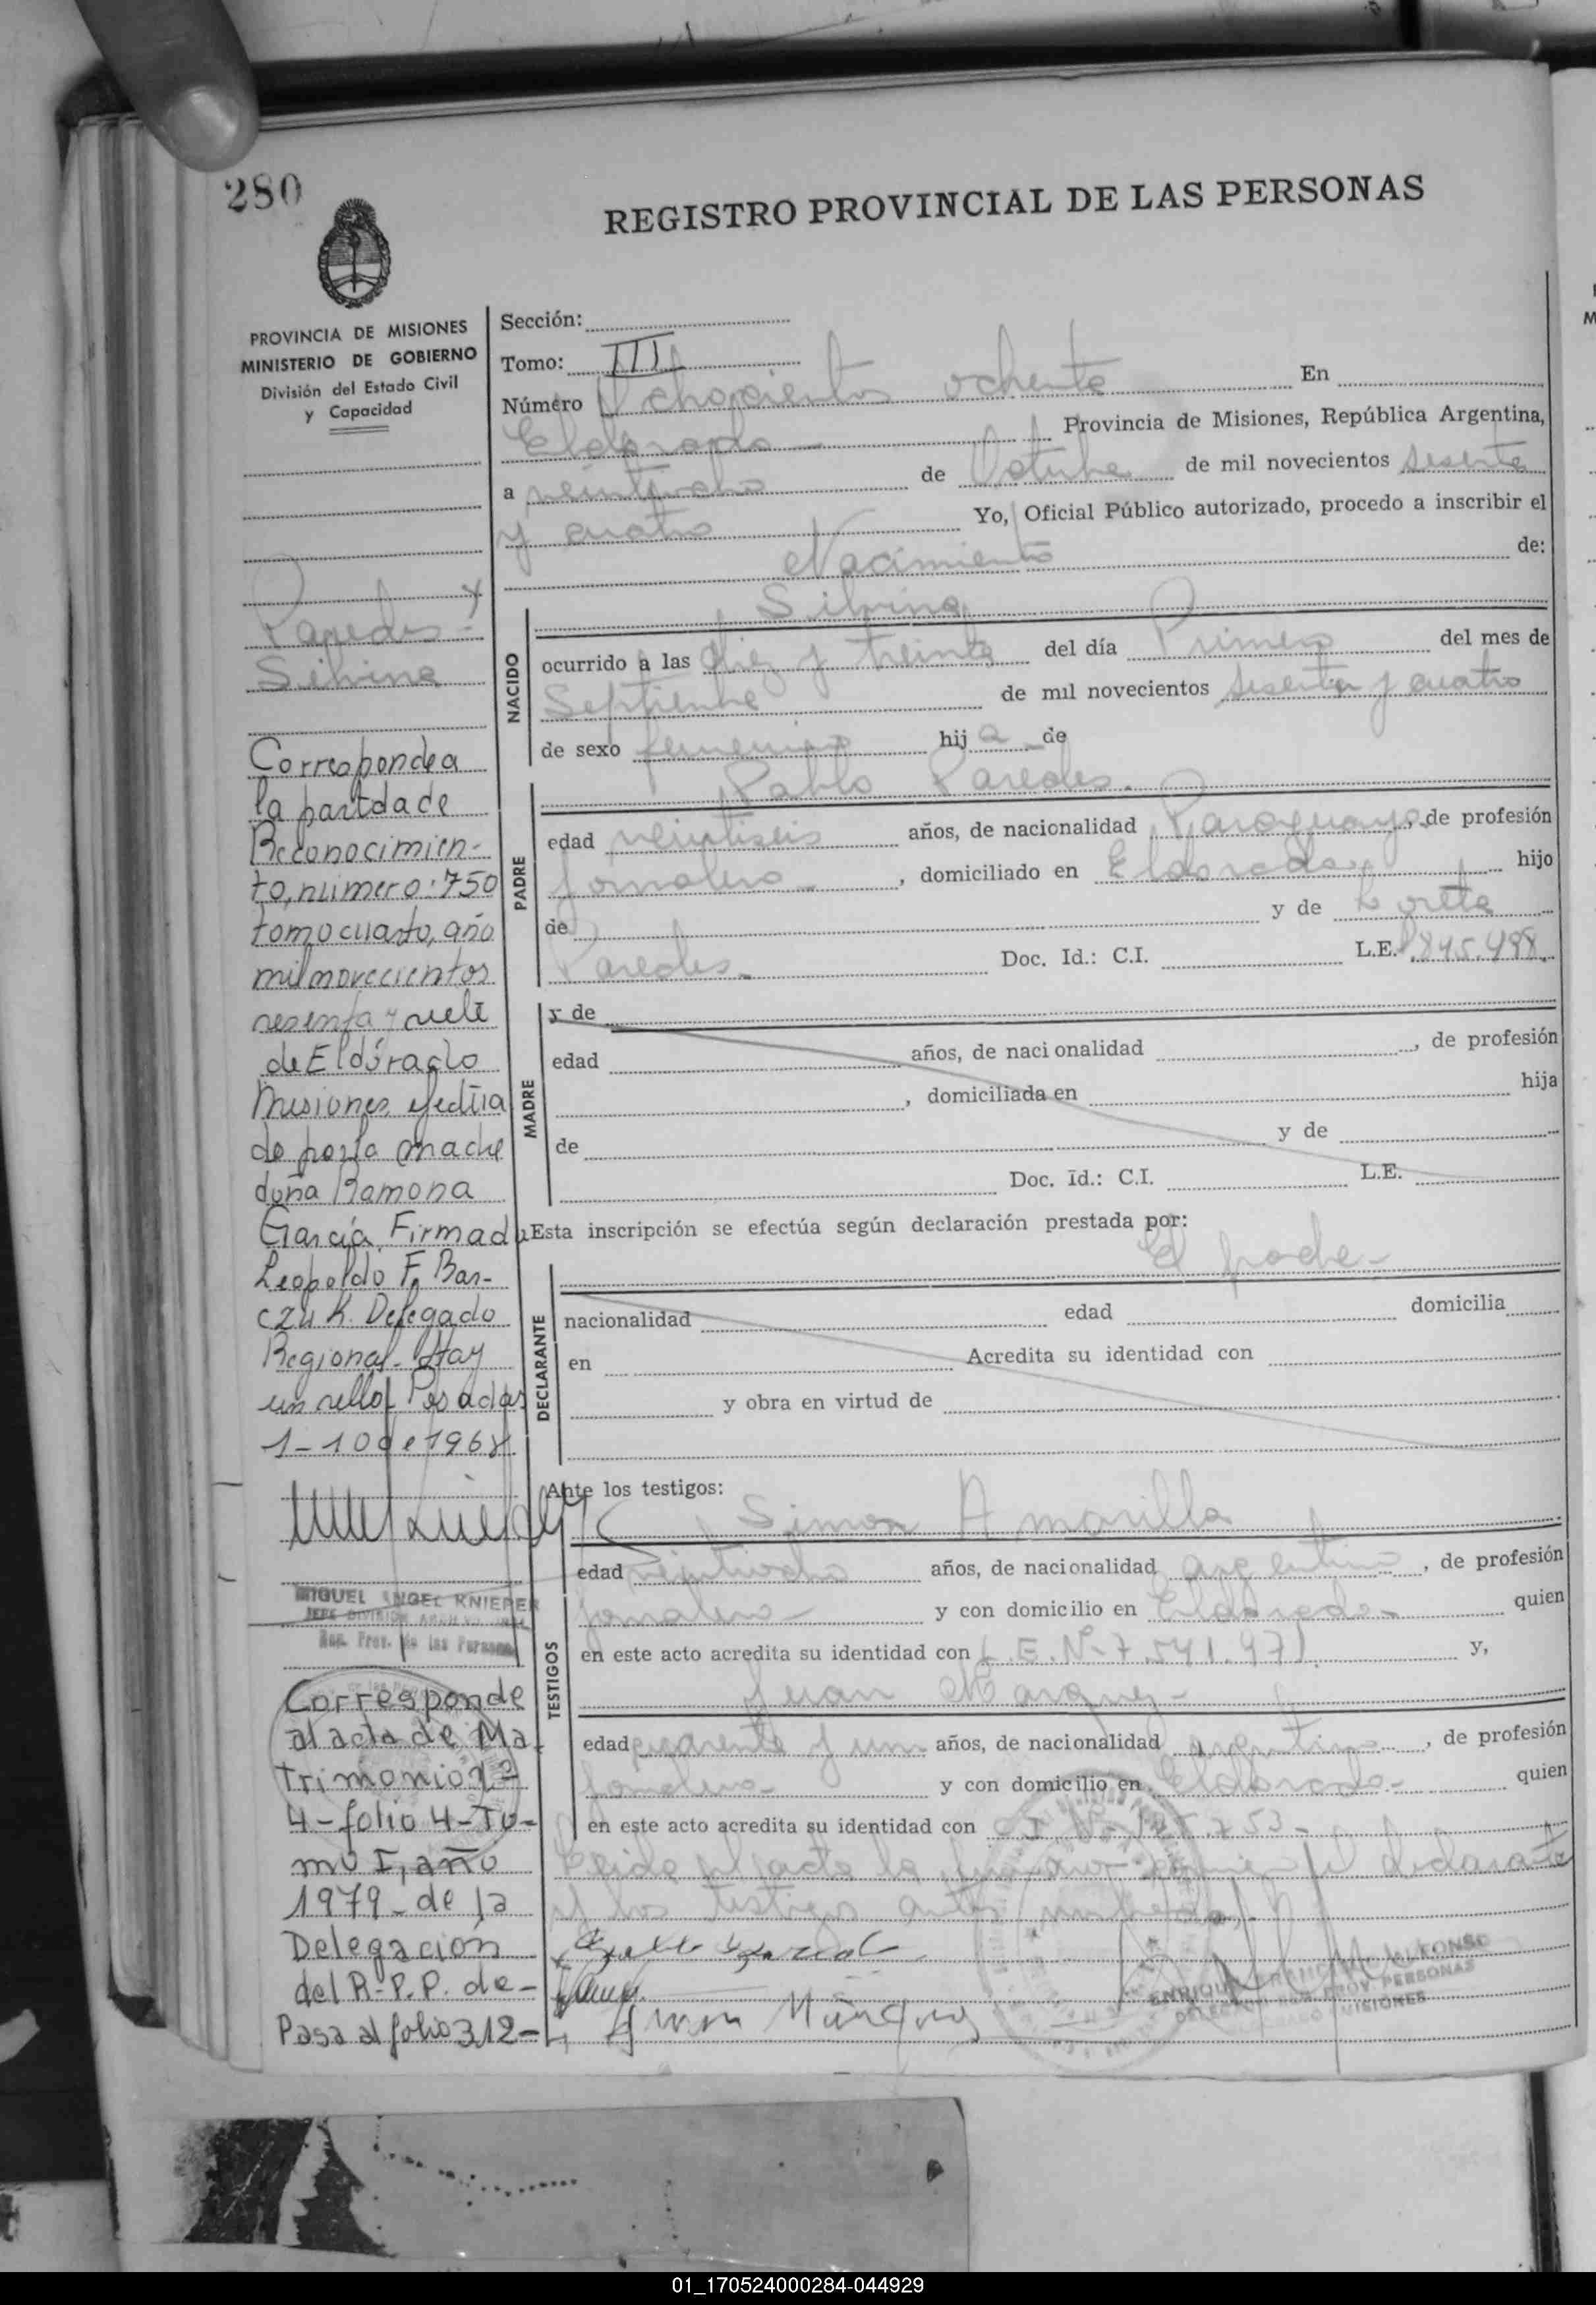 280
REGISTRO PROVINCIAL DE LAS PERSONAS
PROVINCIA DE MISIONES
MINISTERIO DE GOBIERNO
División del Estado Civil
y Capacidad
Paredes
Silvina
Corresponde a
la partda de
Reconocimien-
to, número: 750
tomo cuarto, año
mil novecientos
sesenta y siete
de Eldorado
Misiones efectua
do por la madre
doña Ramona
García. Firmado
Leopoldo F. Bar-
czuk. Delegado
Regional. Hay
un sello Posadas
1-10 de 1968
MIGUEL ANGEL KNIEPER
JEFE DIVISION ARCHIVO
Reg. Prov. de las Personas
Corresponde
al acta de Ma-
trimonio nº
4-folio 4-To-
mo I, año
1979- de la
Delegación
del R.P.P. de-
Pasa al folio 312-
Sección:
Tomo: III
Número Ochocientos ochenta En
Eldorado Provincia de Misiones, República Argentina,
a veintiocho de Octubre de mil novecientos sesenta
y cuatro Yo, Oficial Público autorizado, procedo a inscribir el
Nacimiento de:
Silvina
NACIDO
ocurrido a las diez y treinta del día Primero del mes de
Septiembre de mil novecientos sesenta y cuatro
de sexo femenino hija de
Pablo Paredes.
PADRE
edad veintiseis años, de nacionalidad Paraguaya, de profesión
jornalero, domiciliado en Eldorado hijo
de y de Loreta
Paredes Doc. Id.: C.I. L.E.
MADRE
y de
edad años, de nacionalidad , de profesión
, domiciliada en hija
de y de
Doc. Id.: C.I. L.E.
Esta inscripción se efectúa según declaración prestada por:
El padre-
DECLARANTE
nacionalidad edad domicilia
en Acredita su identidad con
y obra en virtud de
Ante los testigos:
Simon Amarilla
TESTIGOS
edad veintiocho años, de nacionalidad argentino, de profesión
jornalero- y con domicilio en Eldorado- quien
en este acto acredita su identidad con L.E.Nº-7.541.971 y,
Juan Marquez-
edad cuarenta y un años, de nacionalidad argentino, de profesión
jornalero- y con domicilio en Eldorado- quien
en este acto acredita su identidad con C.I.Nº
Leida el acta la firman el declarante
y los testigos antes nombrados.
Juan Márquez
DELEGADO REG. PROV. PERSONAS
ELDORADO MISIONES
01_170524000284-044929